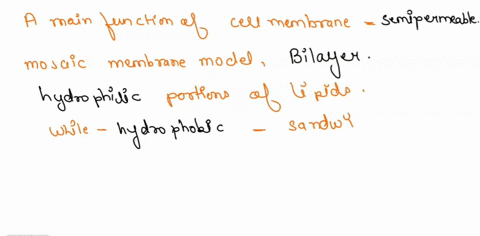 A main function of cell membrane - semipermeable.
mosaic membrane model, Bilayer.
hydrophilic portions of lipids.
while - hydrophobic - sandwy